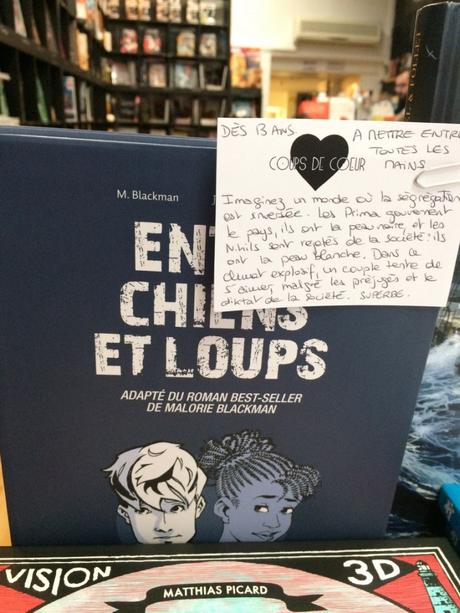 DÈS 13 ANS.
A METTRE ENTRE
TOUTES LES
MAINS
COUPS DE COEUR
Imaginez un monde où la ségrégation
est inversée. Les Prima gouvernent
le pays, ils ont la peau noire, et les
Nihils sont rejetés de la société: ils
ont la peau blanche. Dans ce
climat explosif, un couple tente de
s'aimer malgré les préjugés et le
diktat de la société. SUPERBE.
M. Blackman
ENT
CHIENS
ET LOUPS
ADAPTÉ DU ROMAN BEST-SELLER
DE MALORIE BLACKMAN
VISION
MATTHIAS PICARD
3D